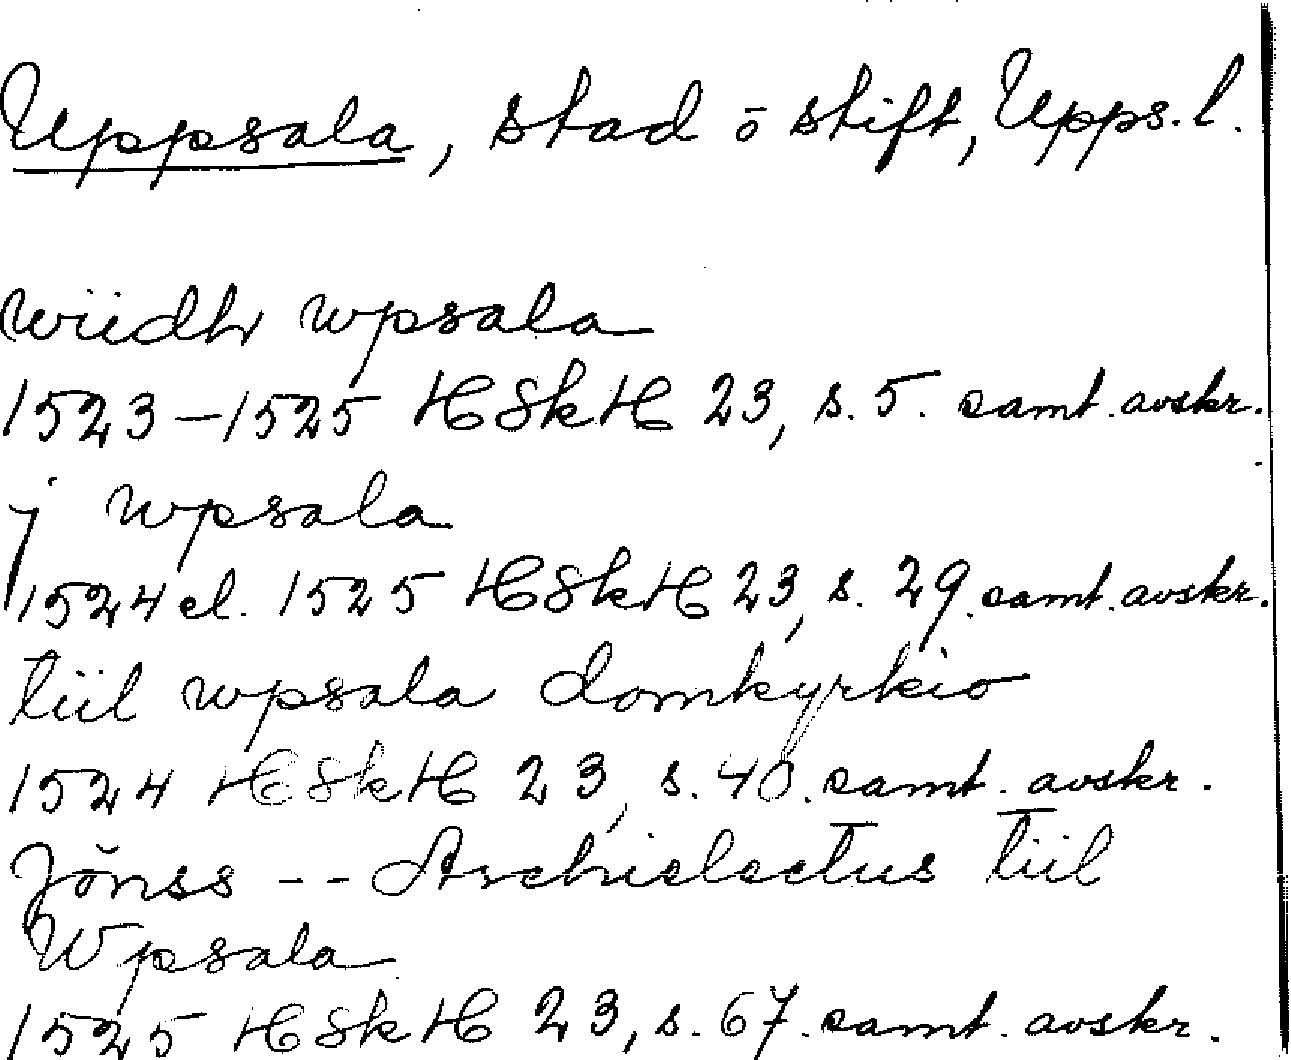 Uppsala, stad o stift, Upps. l.
wiidh wpsala
1523-1525 HSkH 23, s. 5. samt. avskr.
j wpsala
1524 el. 1525 HSkH 23, s. 29. samt. avskr.
tiil wpsala domkyrkio
1524 HSkH 23, s. 40. samt. avskr.
Jönss -- Archielectus tiil
Wpsala
1525 HSkH 23, s. 67. samt. avskr.